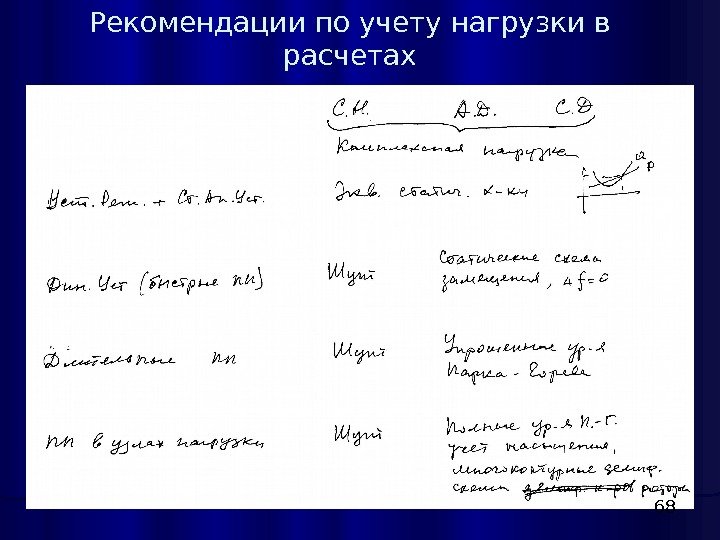 Рекомендации по учету нагрузки в
расчетах
С.Н. А.Д. С.Д
Комплексная нагрузка
Q
P
Уст. Реж. + Ст. Ап. Уст. Экв. статич. х-ки
Дин. Уст (быстрые ПП) Шунт Статические схема
замещения, Δf=0
Длительные ПП Шунт Упрощенные ур-я
Парка-Горева
ПП в узлах нагрузки Шунт Полные ур-я П.-Г.
учет насыщения,
многоконтурные демпф.
схема ротора
68